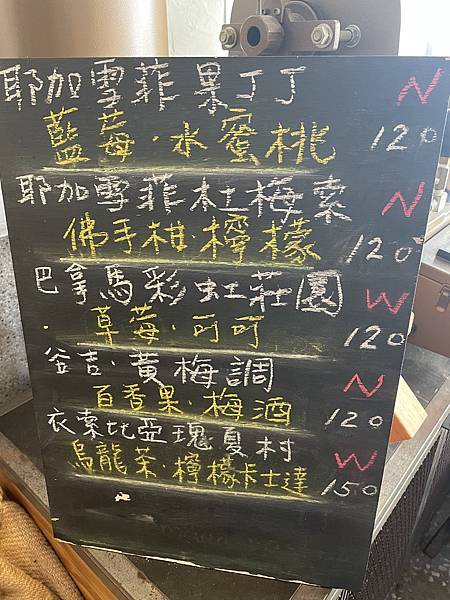 耶加雪菲果丁丁 N
藍莓·水蜜桃 120
耶加雪菲杜梅索 N
佛手柑檸檬 120
巴拿馬彩虹莊園 W
草莓·可可 120
谷吉·黃梅調 N
百香果·梅酒 120
衣索比亞瑰夏村 W
烏龍茶·檸檬卡士達 150